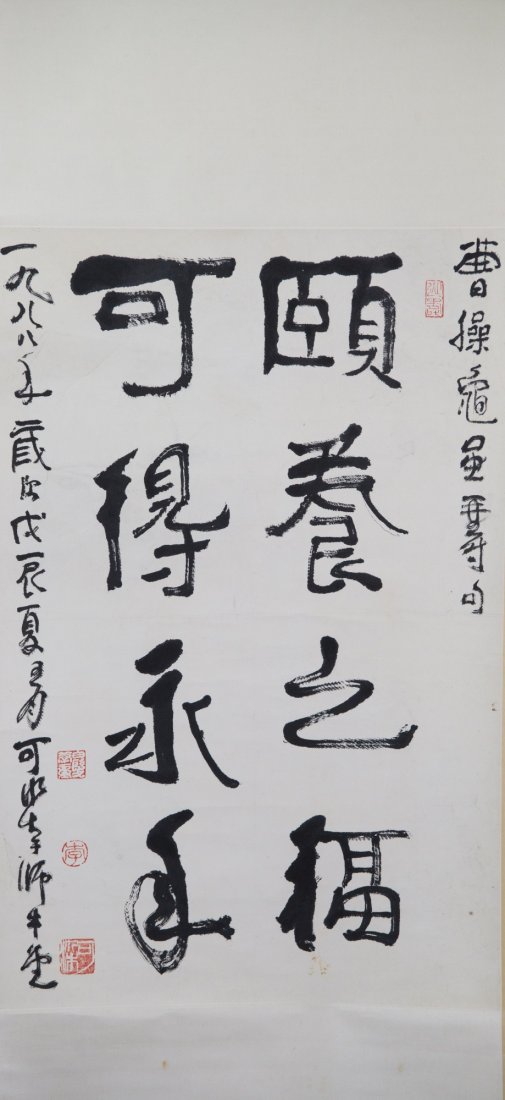 曹操龜虽壽句
頤養之福
可得永年
一九八八年歲次戊辰夏月可染師牛堂